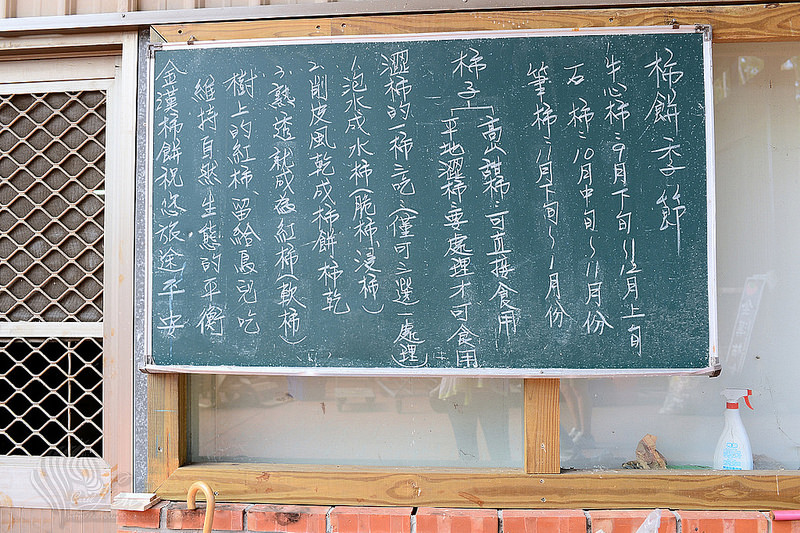 柿餅季節
牛心柿:9月下旬~12月上旬
石柿:10月中旬~11月份
筆柿:11月下旬~1月份
柿子
高山甜柿:可直接食用
平地澀柿:要處理才可食用
澀柿的一柿三吃:(僅可三選一處理)
1、泡水成水柿(脆柿、浸柿)
2、削皮風乾成柿餅、柿乾
3、熟透就成為紅柿(軟柿)
樹上的紅柿、留給鳥兒吃
維持自然生態的平衡
金漢柿餅祝您旅途平安